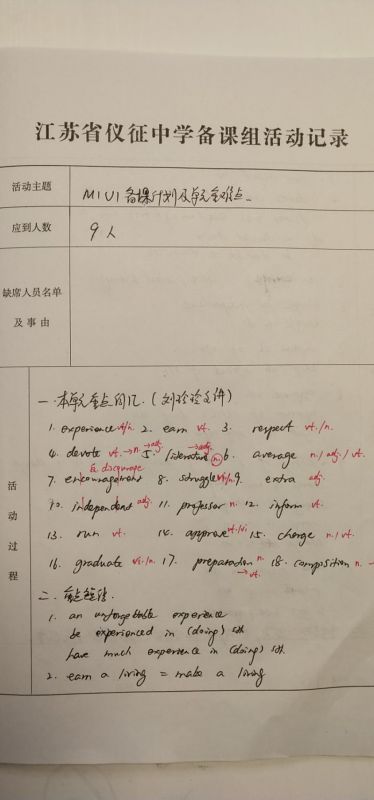 江苏省仪征中学备课组活动记录
活动主题 M1U1备课计划及单元重难点
应到人数 9人
缺席人员名单
及事由
活动过程
一.本单元重点词汇.(刘玲玲主讲)
1. experience vt/n. 2. earn vt. 3. respect vt./n.
4. devote vt.→n. 5. literature →adj. n. 6. average n./adj./vt.
& discourage
7. encouragement 8. struggle vi/n 9. extra adj.
10. independent adj. 11. professor n. 12. inform vt.
13. run vt. 14. approve vt./vi 15. change n./vt.
16. graduate vi./n. 17. preparation n. 18. composition n. →
→vt.
二.重点短语.
1. an unforgettable experience
be experienced in (doing) sth
have much experience in (doing) sth
2. earn a living = make a living